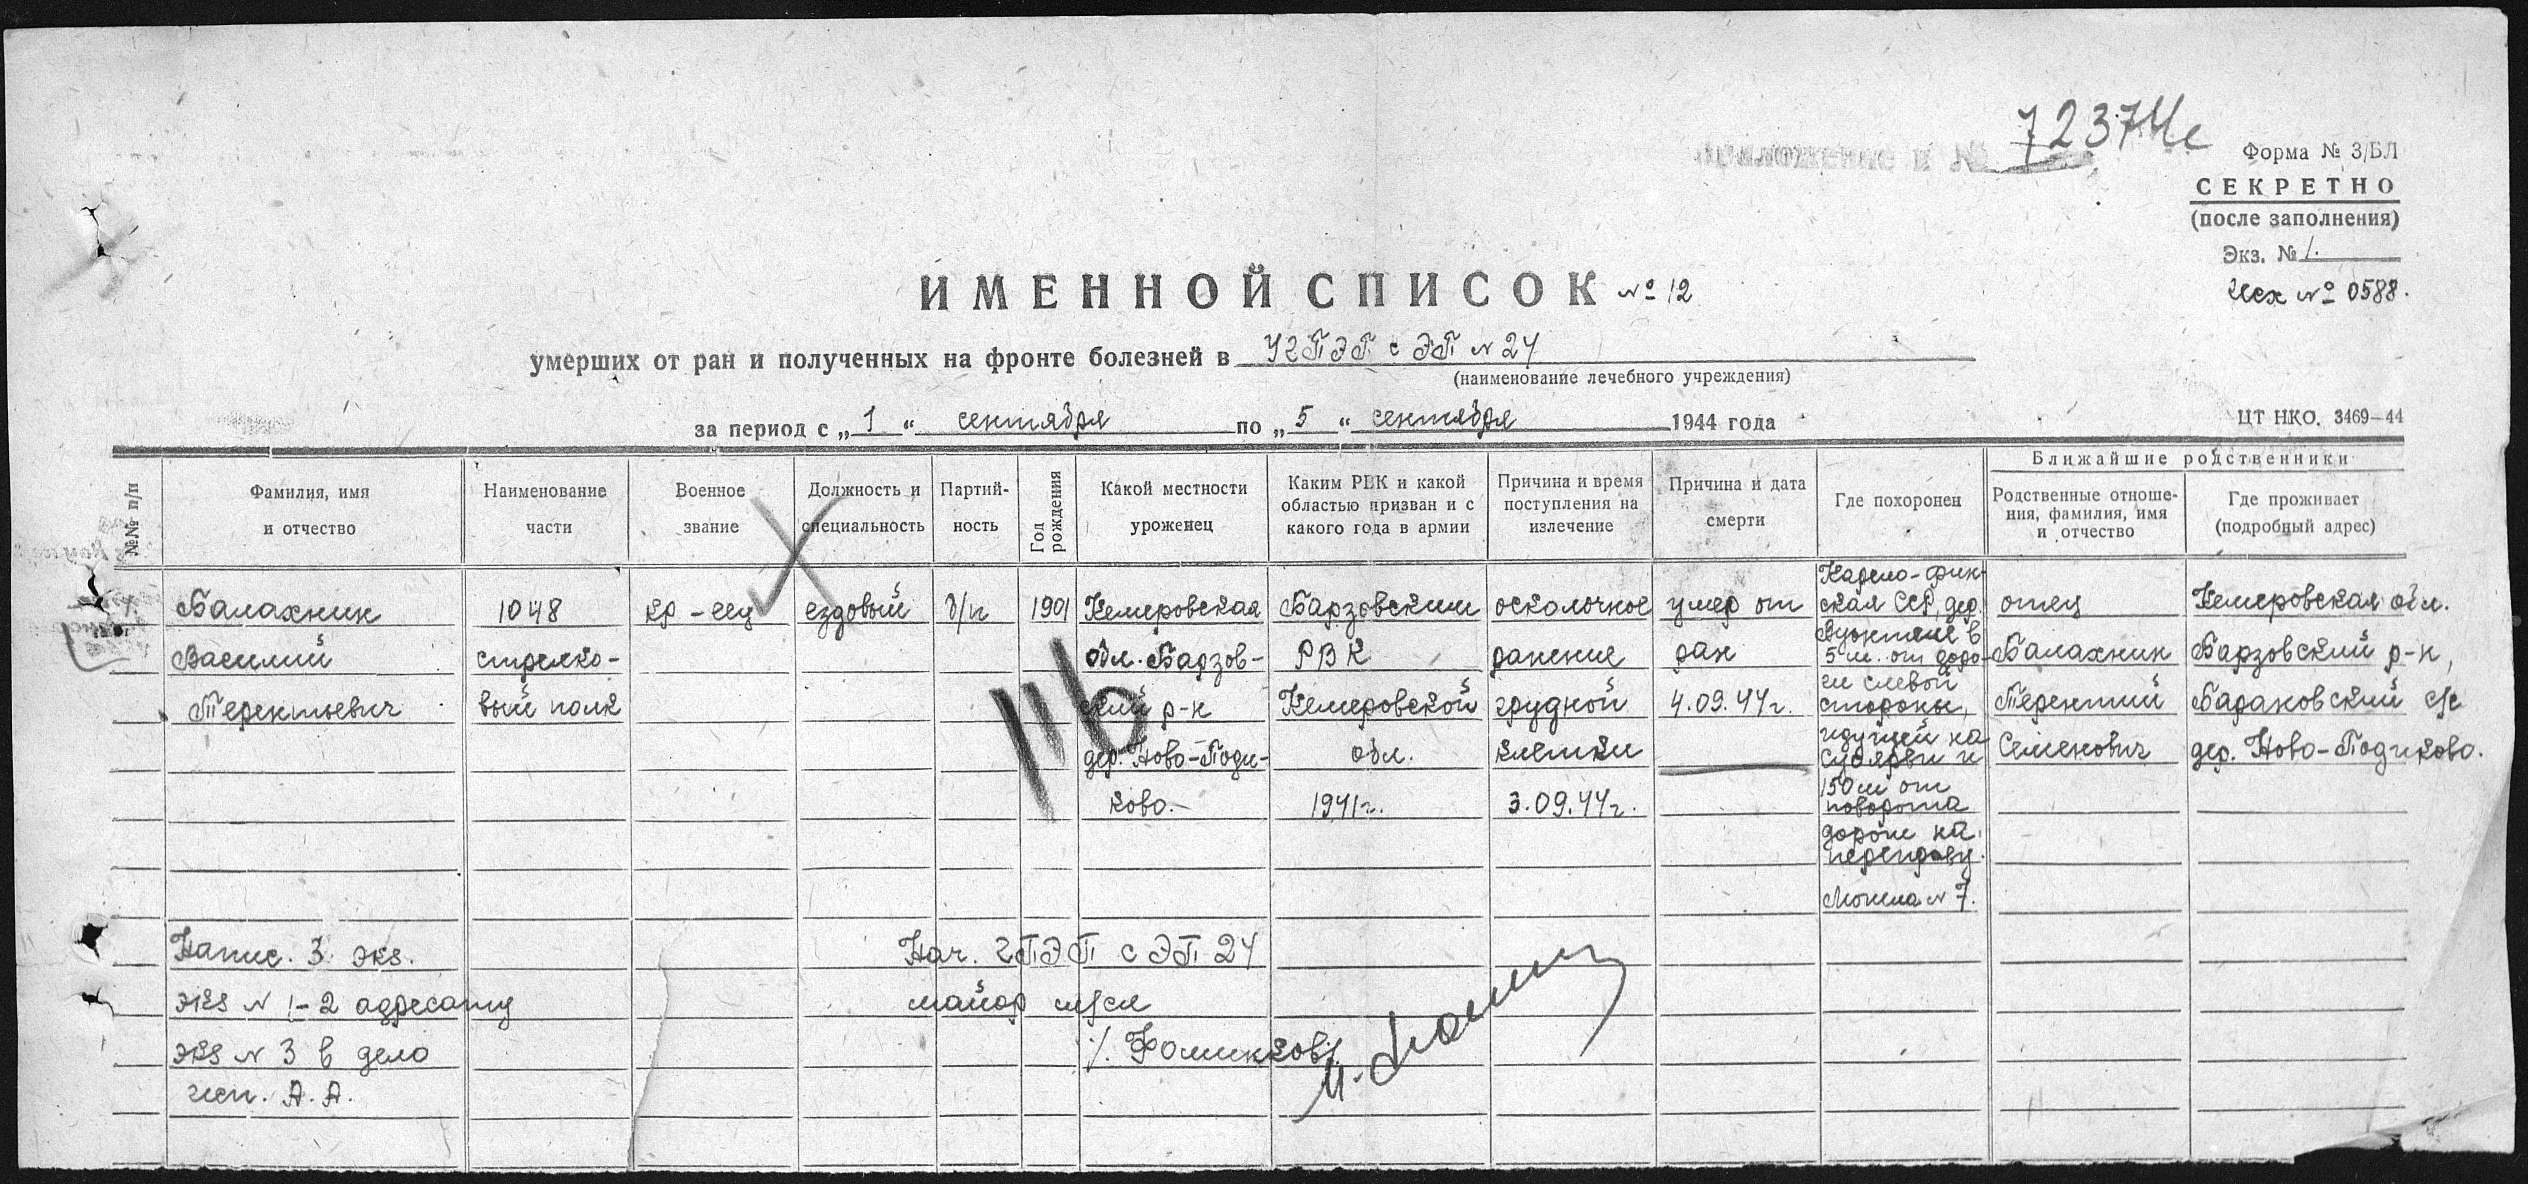 72374с
Приложение к №
Форма № 3/БЛ
СЕКРЕТНО
(после заполнения)
Экз. № 1.
Исх № 0588.
ИМЕННОЙ СПИСОК № 12
умерших от ран и полученных на фронте болезней в У2ПЭП с ЭП № 24
(наименование лечебного учреждения)
за период с „ 1 “ сентября по „ 5 “ сентября 1944 года
ЦТ НКО. 3469—44
№№ п/п
Фамилия, имя
и отчество
Наименование
части
Военное
звание
Должность и
специальность
Партий-
ность
Год
рождения
Какой местности
уроженец
Каким РВК и какой
областью призван и с
какого года в армии
Причина и время
поступления на
излечение
Причина и дата
смерти
Где похоронен
Ближайшие родственники
Родственные отноше-
ния, фамилия, имя
и отчество
Где проживает
(подробный адрес)
Балахнин
Василий
Терентьевич
1048
стрелко-
вый полк
кр-еец
ездовый
б/п
1901
Кемеровская
обл. Барзов-
ский р-н
дер. Ново-Поди-
ково.
Барзовским
РВК
Кемеровской
обл.
1941г.
осколочное
ранение
грудной
клетки
3.09.44г.
умер от
ран
4.09.44г.
Карело-фин-
ская ССР, дер.
в
5 м. от доро-
ги с левой
стороны,
идущей на
Суоярви и
150 м от
поворота
дороги на
переправу.
Могила № 7.
отец
Балахнин
Терентий
Семенович
Кемеровская обл.
Барзовский р-н,
Барановский с/с
дер. Ново-Подиково.
116
Напис. 3 экз.
экз № 1-2 адресату
экз № 3 в дело
исп. А.А.
Нач. 2ПЭП с ЭП 24
майор м/сл
/. Фоминков/.